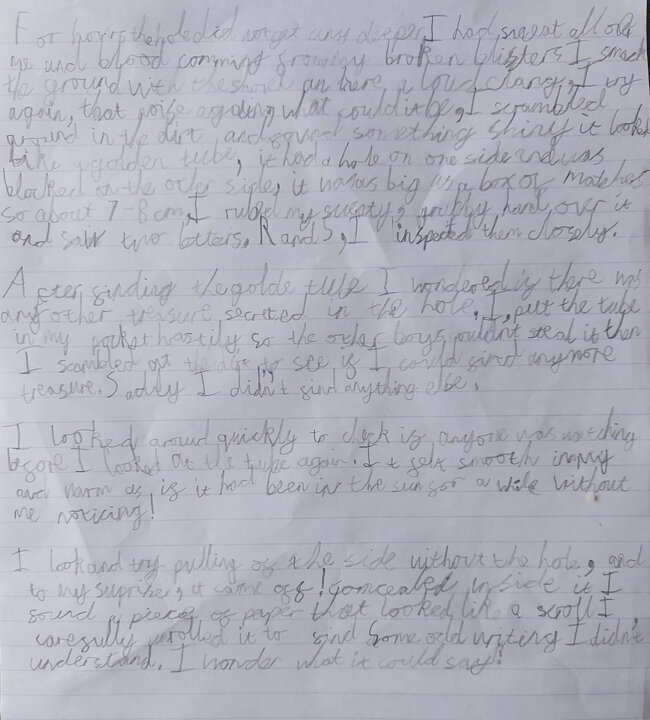 For hours the hole did not get any deeper I had sweat all over
me and blood comming from my broken blisters I smack
the ground with the shovel an here a loud clang, I try
again, that noise again, what could it be, I scrambled
around in the dirt and found something shiny it looked
like a golden tube, it had a hole on one side and was
blocked on the other side, it was as big as a box of matches
so about 7-8 cm, I rubed my sweaty, hand over it
and saw two letters. K and S, I inspected them closely.
After finding the golde tube I wondered if there was
any other treasure secreted in the hole. I put the tube
in my pocket hastily so the other boys couldn't steal it then
I scambled at the dirt to see if I could find anymore
treasure. Sadly I didn't find anything else.
I looked around quickly to check if anyone was watching
before I looked at the tube again. It felt smooth in my
and warm as if it had been in the sun for a while without
me noticing!
I look and try pulling of the side without the hole, and
to my suprise, it came off! Concealed inside it I
found a piece of paper that looked like a scroll I
carefully unrolled it to find some odd writing I didn't
understand. I wonder what it could say!